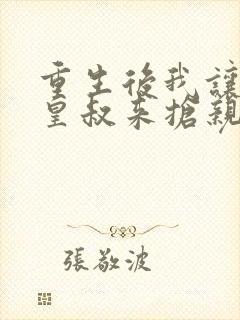 重生後我讓
皇叔来搶親
張敬波